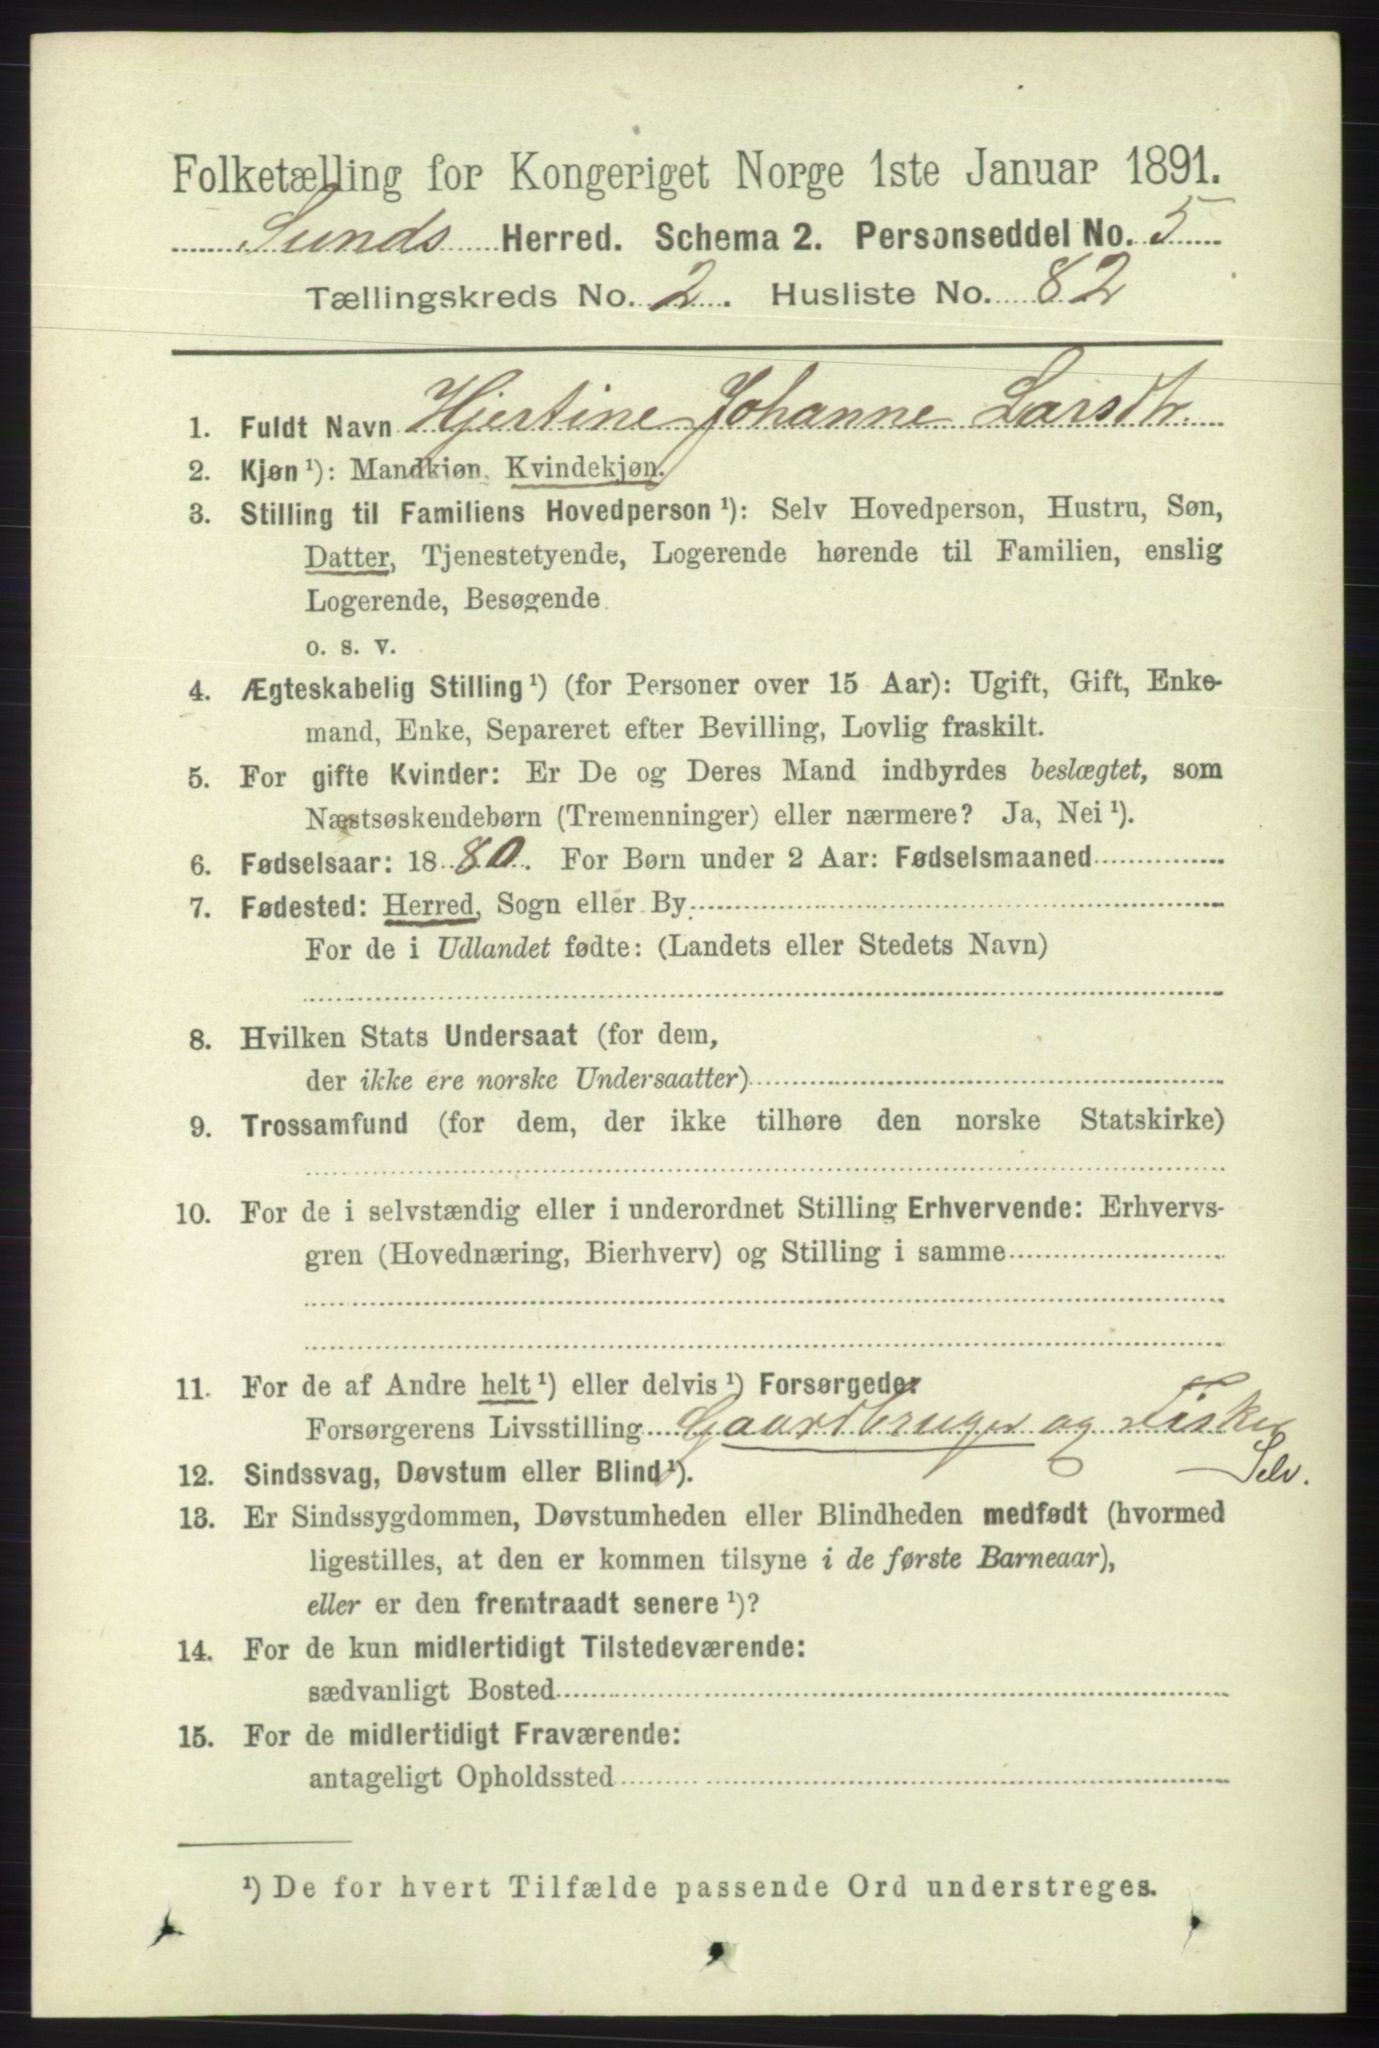 Folketælling for Kongeriget Norge 1ste Januar 1891.
Sunds Herred. Schema 2. Personseddel No. 5
Tællingskreds No. 2. Husliste No. 82
1. Fuldt Navn Hjertine Johanne Larsdtr.
2. Kjøn ¹): Mandkjøn. Kvindekjøn.
3. Stilling til Familiens Hovedperson ¹): Selv Hovedperson, Hustru, Søn,
Datter, Tjenestetyende, Logerende hørende til Familien, enslig
Logerende, Besøgende
o. s. v.
4. Ægteskabelig Stilling ¹) (for Personer over 15 Aar): Ugift, Gift, Enke-
mand, Enke, Separeret efter Bevilling, Lovlig fraskilt.
5. For gifte Kvinder: Er De og Deres Mand indbyrdes beslægtet, som
Næstsøskendebørn (Tremenninger) eller nærmere? Ja, Nei ¹).
6. Fødselsaar: 1880. For Børn under 2 Aar: Fødselsmaaned
7. Fødested: Herred, Sogn eller By
For de i Udlandet fødte: (Landets eller Stedets Navn)
8. Hvilken Stats Undersaat (for dem,
der ikke ere norske Undersaatter)
9. Trossamfund (for dem, der ikke tilhøre den norske Statskirke)
10. For de i selvstændig eller i underordnet Stilling Erhvervende: Erhvervs-
gren (Hovednæring, Bierhverv) og Stilling i samme
11. For de af Andre helt ¹) eller delvis ¹) Forsørgede:
Forsørgerens Livsstilling Gaardbruger og Fisker
Selv.
12. Sindssvag, Døvstum eller Blind ¹).
13. Er Sindssygdommen, Døvstumheden eller Blindheden medfødt (hvormed
ligestilles, at den er kommen tilsyne i de første Barneaar),
eller er den fremtraadt senere ¹)?
14. For de kun midlertidigt Tilstedeværende:
sædvanligt Bosted
15. For de midlertidigt Fraværende:
antageligt Opholdssted
¹) De for hvert Tilfælde passende Ord understreges.